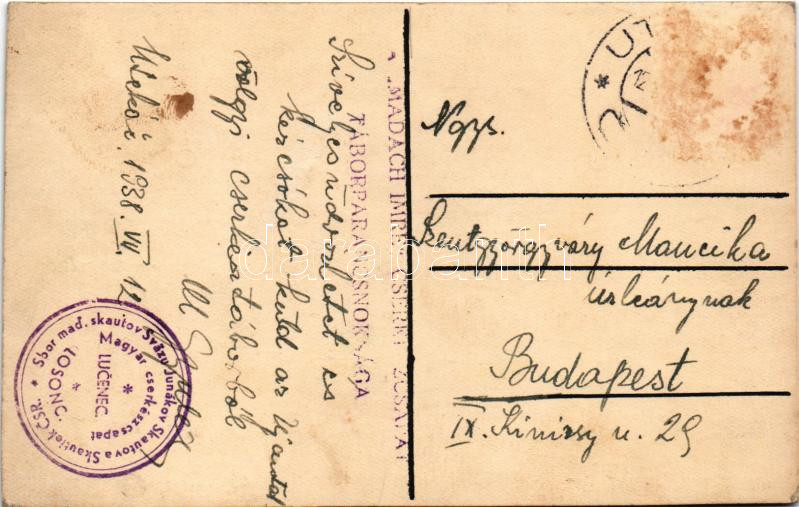 MADÁCH IMRE CSERK
TÁBORPARANCSNOKSÁGA
Szivélyes üdvözletét és
kézcsókat küld az
völgyi cserkésztáborból
1938. VII. 12
Sbor maď. skautov Sväzu Junákov Skautov a Skautiek ČSR.
Magyar cserkészcsapat
LUČENEC
LOSONC
Ngys.
Szentgyörgyváry Mancika
úrleánynak
Budapest
IX. Kinizsy u. 29
darabanth